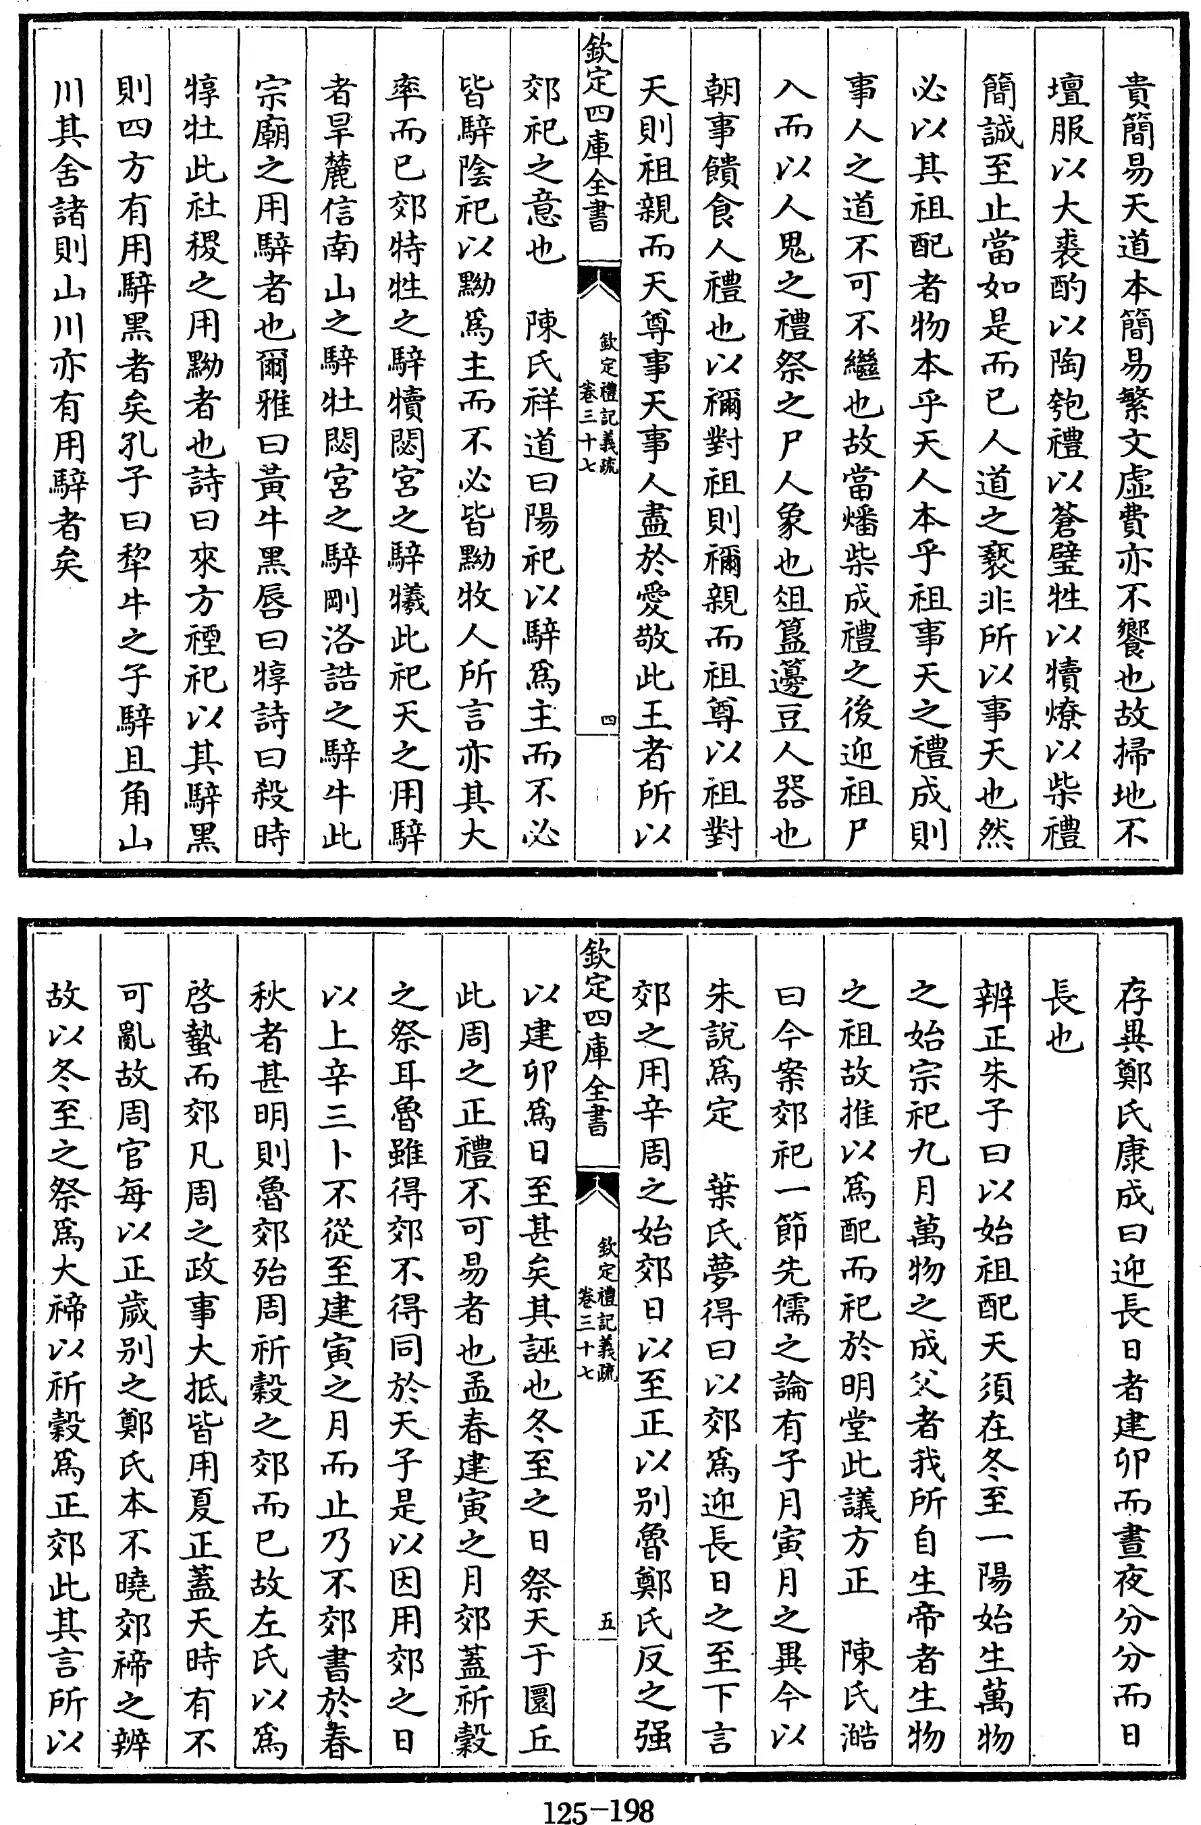 貴簡易天道本簡易繁文虛費亦不饗也故掃地不
壇服以大裘酌以陶匏禮以蒼璧牲以犢燎以柴禮
簡誠至止當如是而已人道之褻非所以事天也然
必以其祖配者物本乎天人本乎祖事天之禮成則
事人之道不可不繼也故當燔柴成禮之後迎祖尸
入而以人鬼之禮祭之尸人象也俎簋籩豆人器也
朝事饋食人禮也以禰對祖則禰親而祖尊以祖對
天則祖親而天尊事天事人盡於愛敬此王者所以
欽定四庫全書
欽定禮記義疏
卷三十七
四
郊祀之意也　陳氏祥道曰陽祀以騂爲主而不必
皆騂陰祀以黝爲主而不必皆黝牧人所言亦其大
率而已郊特牲之騂犢閟宮之騂犧此祀天之用騂
者旱麓信南山之騂牡閟宮之騂剛洛誥之騂牛此
宗廟之用騂者也爾雅曰黃牛黑脣曰犉詩曰殺時
犉牡此社稷之用黝者也詩曰來方禋祀以其騂黑
則四方有用騂黑者矣孔子曰犂牛之子騂且角山
川其舍諸則山川亦有用騂者矣
存異鄭氏康成曰迎長日者建卯而晝夜分分而日
長也
辨正朱子曰以始祖配天須在冬至一陽始生萬物
之始宗祀九月萬物之成父者我所自生帝者生物
之祖故推以爲配而祀於明堂此議方正　陳氏澔
曰今案郊祀一節先儒之論有子月寅月之異今以
朱說爲定　葉氏夢得曰以郊爲迎長日之至下言
郊之用辛周之始郊日以至正以别魯鄭氏反之强
欽定四庫全書
欽定禮記義疏
卷三十七
五
以建卯爲日至甚矣其誣也冬至之日祭天于圜丘
此周之正禮不可易者也孟春建寅之月郊蓋祈穀
之祭耳魯雖得郊不得同於天子是以因用郊之日
以上辛三卜不從至建寅之月而止乃不郊書於春
秋者甚明則魯郊殆周祈穀之郊而已故左氏以爲
啓蟄而郊凡周之政事大抵皆用夏正蓋天時有不
可亂故周官每以正歲别之鄭氏本不曉郊禘之辨
故以冬至之祭爲大禘以祈穀爲正郊此其言所以
125-198